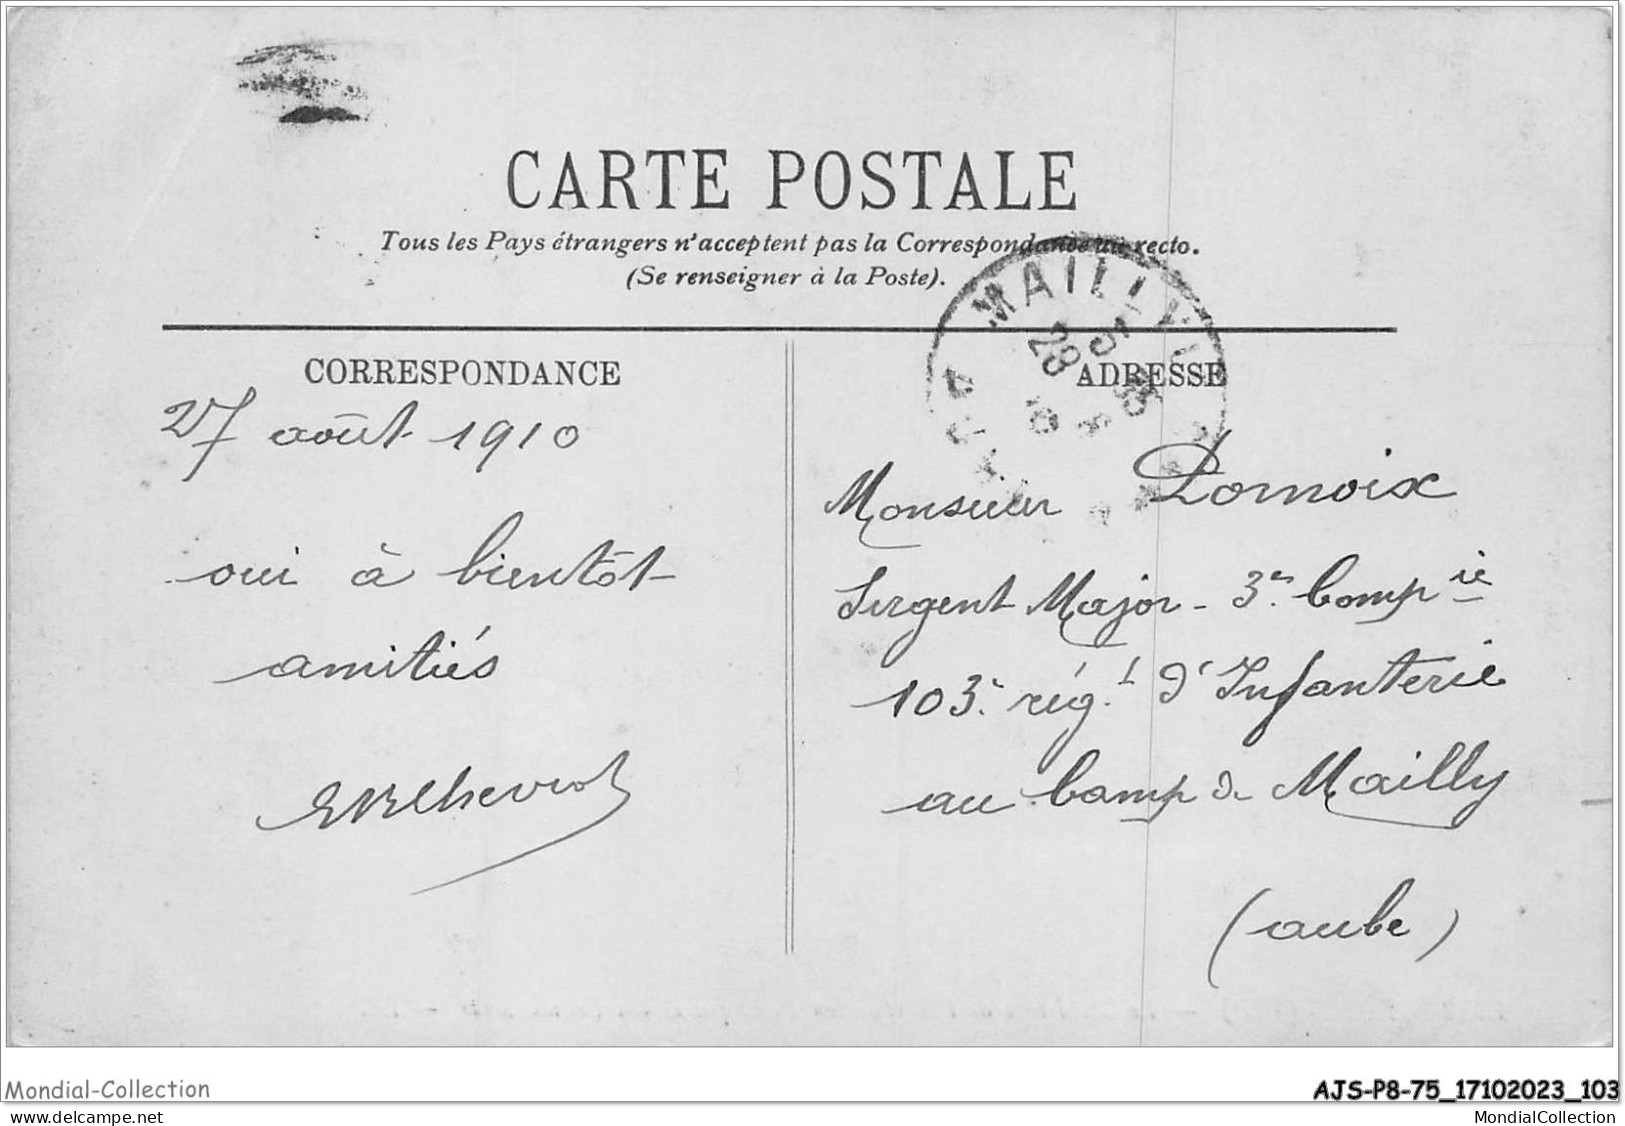 CARTE POSTALE
Tous les Pays étrangers n'acceptent pas la Correspondance au recto.
(Se renseigner à la Poste).
MAILLY
28
CORRESPONDANCE
ADRESSE
27 août 1910
oui à bientôt
amitiés
Monsieur Lornoix
Sergent Major - 3e Compie
103e régt d'Infanterie
au Camp de Mailly
(aube)
Mondial-Collection
www.delcampe.net
AJS-P8-75_17102023_103
MondialCollection